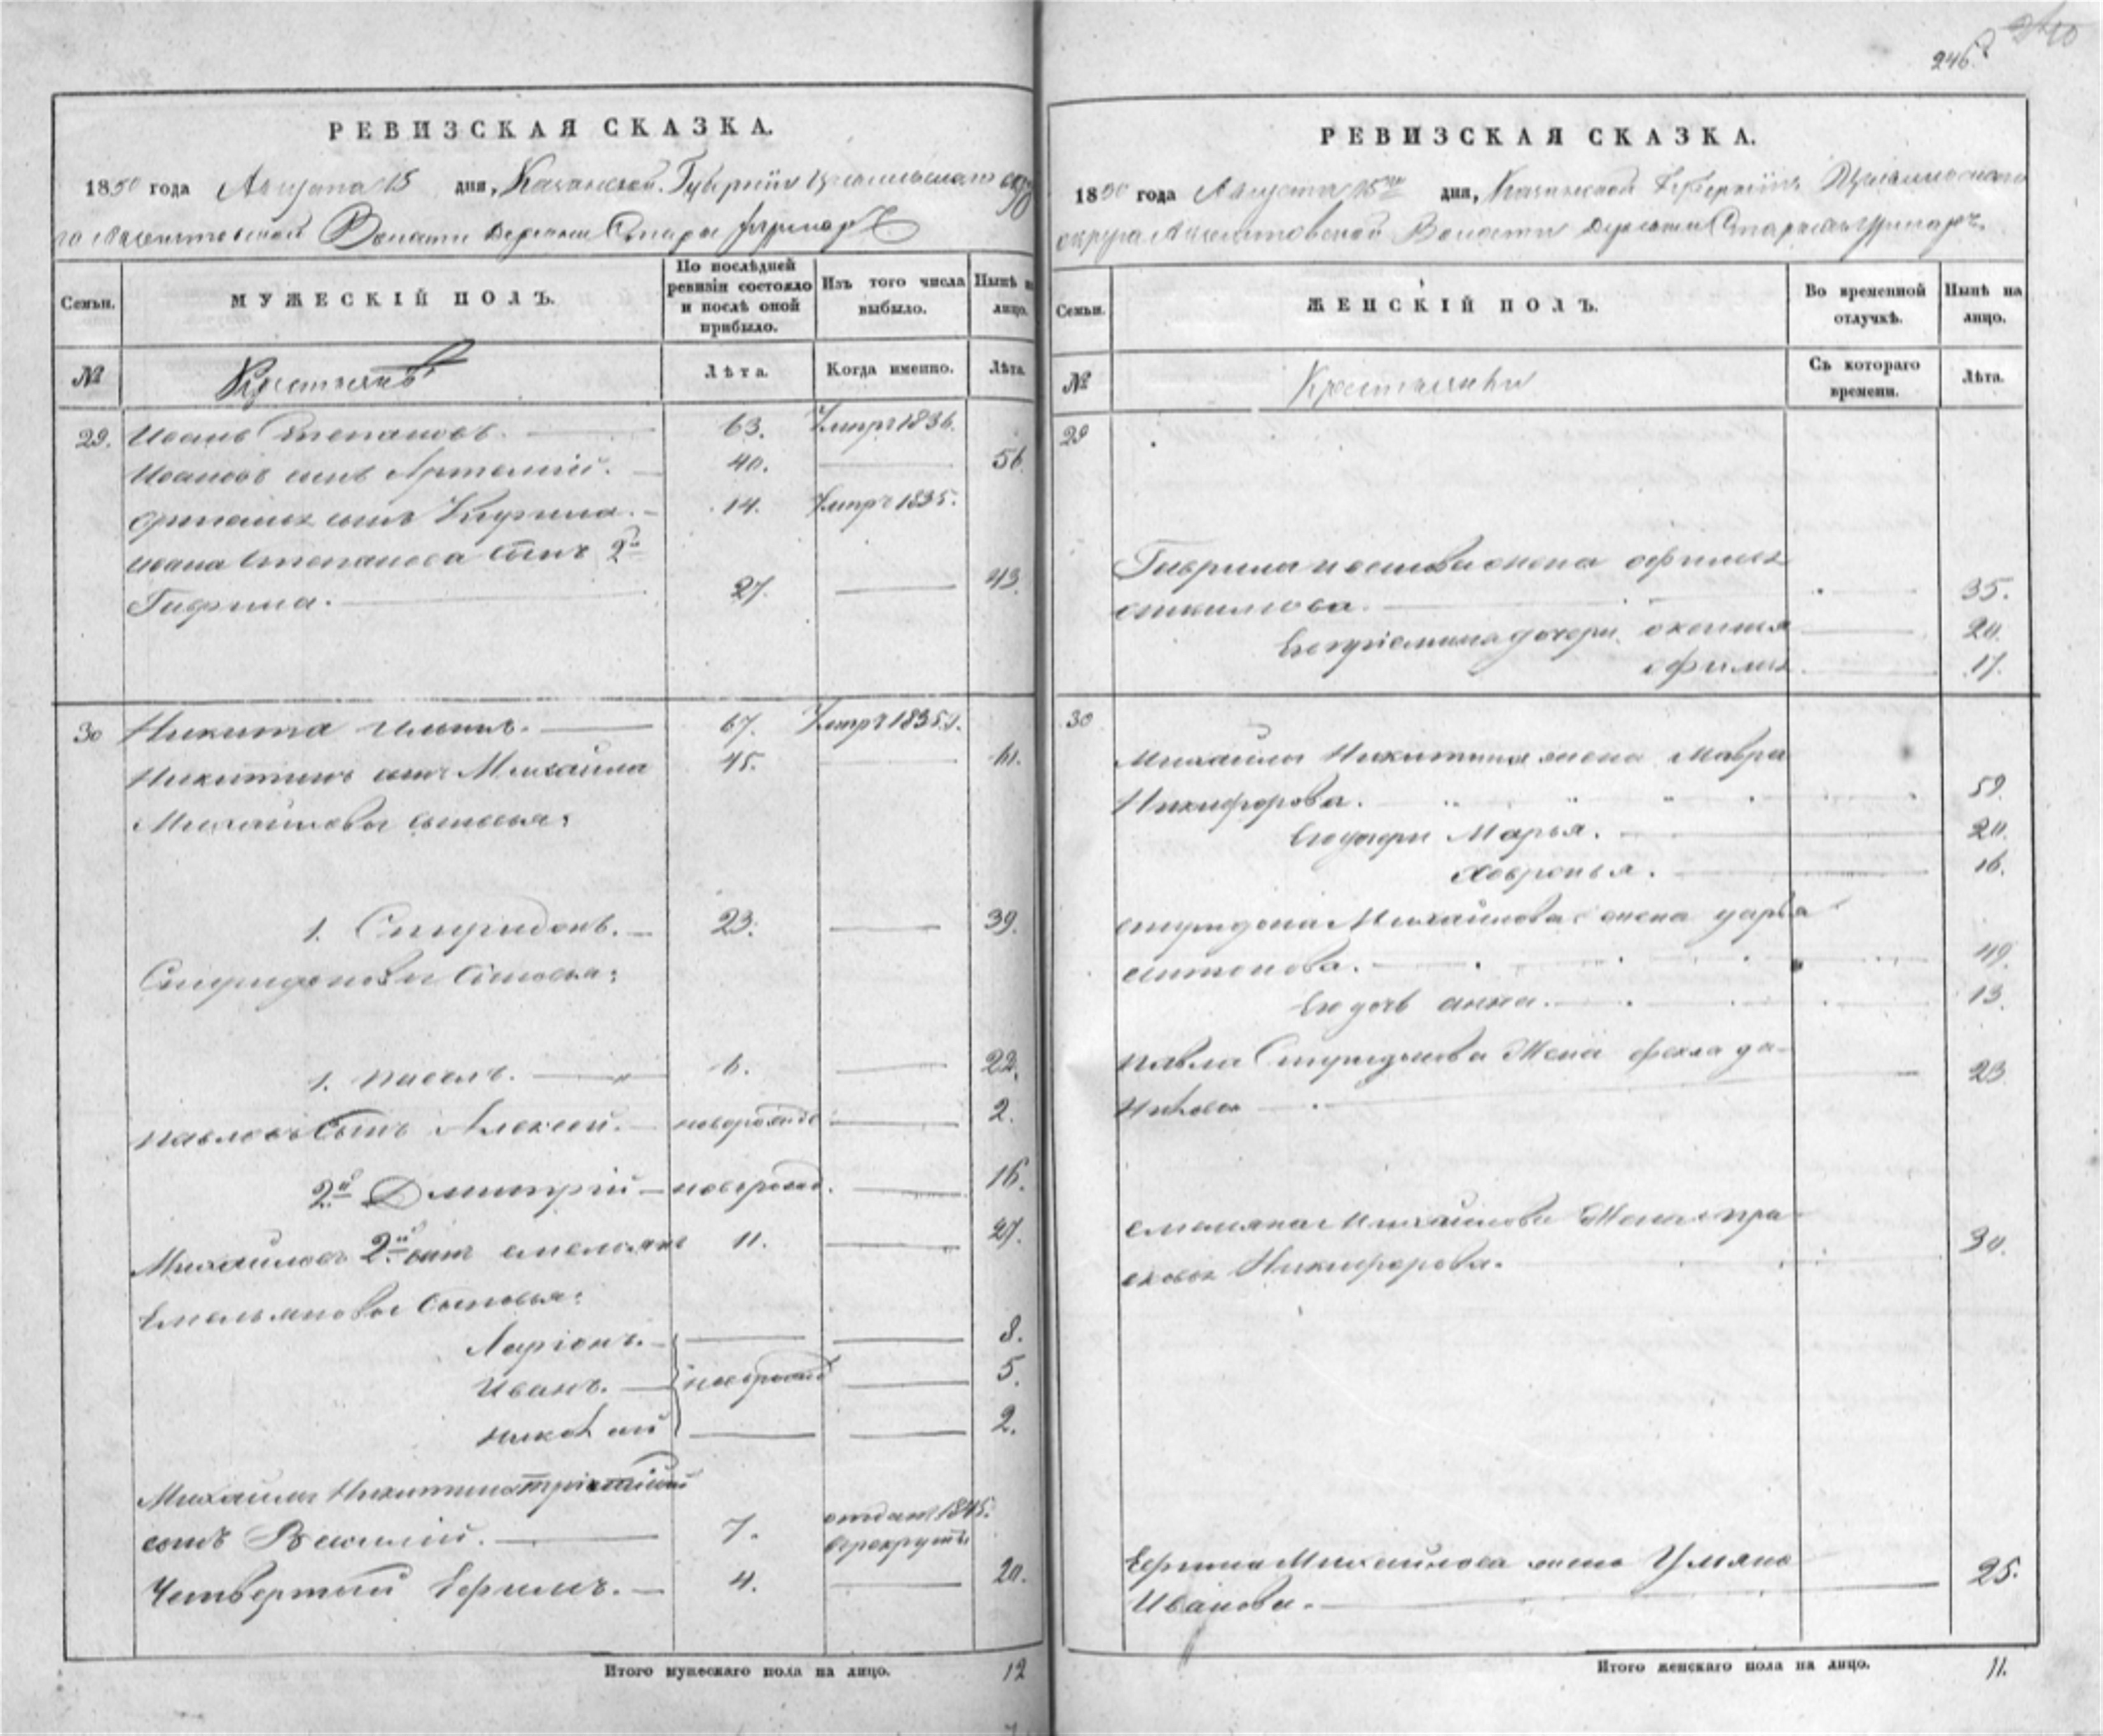 246
РЕВИЗСКАЯ СКАЗКА.
1850 года Августа 15 дня, Казанской Губерніи
Волости Деревни Стары
Семьи. МУЖЕСКІЙ ПОЛЪ. По послѣдней ревизіи состояло и послѣ оной прибыло. Изъ того числа выбыло. Нынѣ на лицо.
№ Крестьянъ Лѣта. Когда именно. Лѣта.
29. Иванъ Степановъ. 63. Умеръ 1836.
Ивановъ сынъ Артемій. 40. 56.
сынъ Кирила. 14. Умеръ 1835.
Ивана Степанова сынъ 2й
Гаврила. 27. 43.
30 Никита Ильинъ. 67. Умеръ 1835.
Никитинъ сынъ Михаила 45. 61.
Михайловы сыновья:
1. Спиридонъ. 23. 39.
Спиридоновы сыновья:
1. Павелъ. 6. 22.
Павловъ сынъ Алексей. новорожд 2.
2й Дмитрій новорожд. 16.
Михайловъ 2й сынъ емельянъ 11. 27.
Емельяновы сыновья:
Ларіонъ. 8.
Иванъ. новорожд 5.
николай 2.
Михайлы Никитина третій
сынъ Василій. 7. отданъ 1845. в рекруты
Четвертый Ефимъ. 4. 20.
Итого мужескаго пола на лицо. 12
РЕВИЗСКАЯ СКАЗКА.
1850 года Августа 15го дня, Казанской Губерніи
округа Волости Деревни
Семьи. ЖЕНСКІЙ ПОЛЪ. Во временной отлучкѣ. Нынѣ на лицо.
№ Крестьянки Съ котораго времени. Лѣта.
29
Гаврила жена
35.
дочери 20.
17.
30
Михайлы Никитина жена Мавра
Никифорова. 59.
Его дочери Марья. 20.
Хавронья. 16.
спиридона Михайлова жена дарья
антонова. 40.
Его дочь анна. 13.
павла Спиридонова Жена фекла да-
нилова 23
емельяна Михайлова Жена пра-
сковья Никифорова. 30.
Ефима Михайлова жена Ульяна
Иванова. 25.
Итого женскаго пола на лицо. 11.